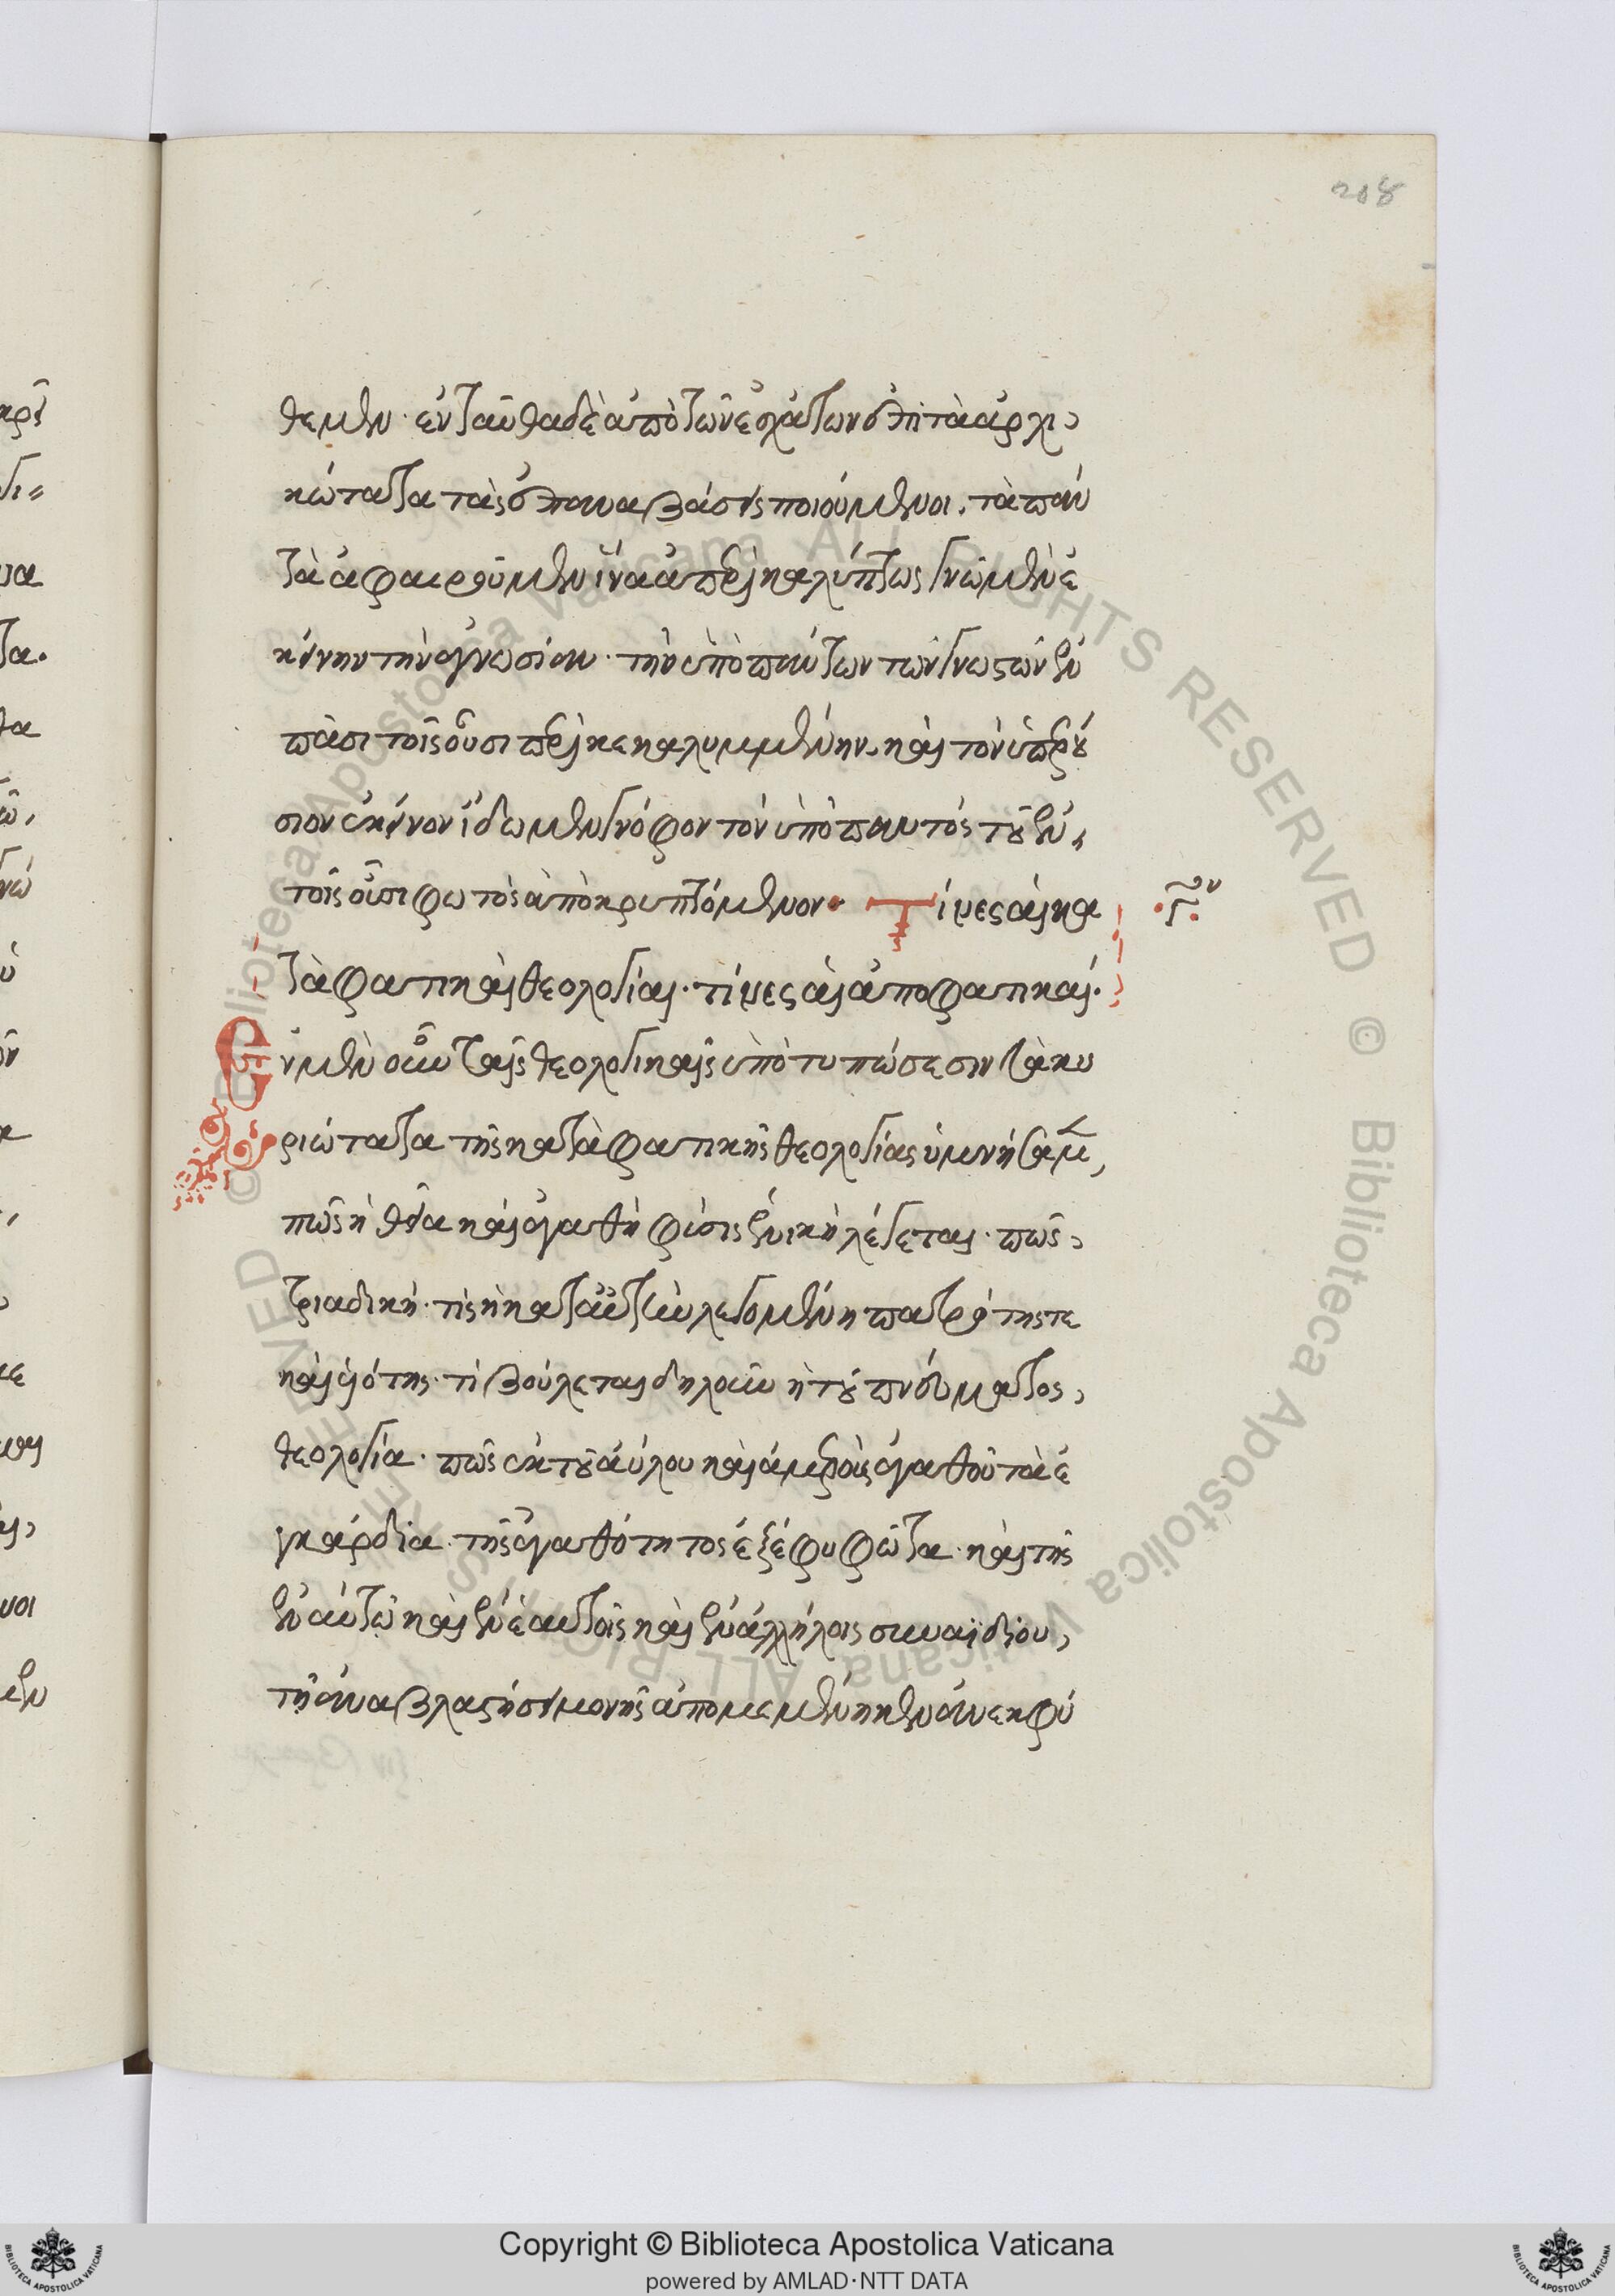 208
θεμεν· ἐνταῦθα δὲ ἀπὸ τῶν ἐσχάτων ἐπὶ τὰ ἀρχι
κώτατα τὰς ἐπαναβάσεις ποιούμενοι, τὰ πάν
τα ἀφαιροῦμεν ἵνα ἀπερικαλύπτως γνῶμεν ἐ
κείνην τὴν ἀγνωσίαν· τὴν ὑπὸ πάντων τῶν γνωστῶν ἐν
πᾶσι τοῖς οὖσι περικεκαλυμμένην, καὶ τὸν ὑπερού
σιον ἐκεῖνον ἴδωμεν γνόφον τὸν ὑπὸ παντὸς τοῦ ἐν,
τοῖς οὖσι φωτὸς ἀποκρυπτόμενον· Τίνες αἱ κα
ταφατικαὶ θεολογίαι· τίνες αἱ ἀποφατικαί·
γον
Ἐν μὲν οὖν ταῖς θεολογικαῖς ὑποτυπώσεσιν τὰ κυ
ριώτατα τῆς καταφατικῆς θεολογίας ὑμνήσαμ,
πῶς ἡ θεία καὶ ἀγαθὴ φύσις ἑνικὴ λέγεται· πῶς,
τριαδική· τίς ἡ κατ' αὐτὴν λεγομένη πατρότης τε
καὶ υἱότης· τί βούλεται δηλοῦν ἡ τοῦ πνεύματος,
θεολογία· πῶς ἐκ τοῦ ἀύλου καὶ ἀμεροῦς ἀγαθοῦ τὰ ἐ
γκάρδια τῆς ἀγαθότητος ἐξέφυ φῶτα· καὶ τῆς
ἐν αὐτῷ καὶ ἐν ἑαυτοῖς καὶ ἐν ἀλλήλοις συναϊδίου,
τῇ ἀναβλαστήσει μονῆς ἀπομεμένηκεν ἀνεκφύ
Copyright © Biblioteca Apostolica Vaticana
powered by AMLAD·NTT DATA